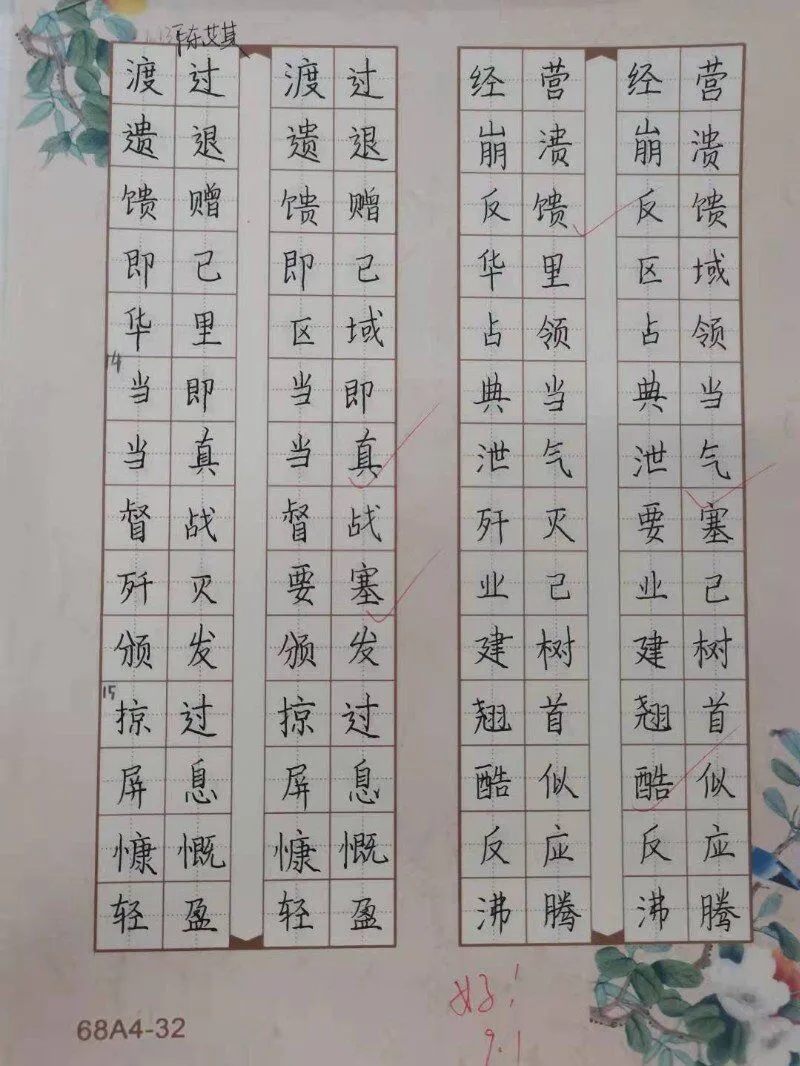 渡过 渡过 经营 经营
遗退 遗退 崩溃 崩溃
馈赠 馈赠 反馈 反馈
即己 即己 华里 区域
华里 区域 占领 占领
14 当即 当即 典当 典当
当真 当真 泄气 泄气
督战 督战 歼灭 要塞
歼灭 要塞 业己 业己
颁发 颁发 建树 建树
15 掠过 掠过 翘首 翘首
屏息 屏息 酷似 酷似
慷慨 慷慨 反应 反应
轻盈 轻盈 沸腾 沸腾
好!
9.1
68A4-32